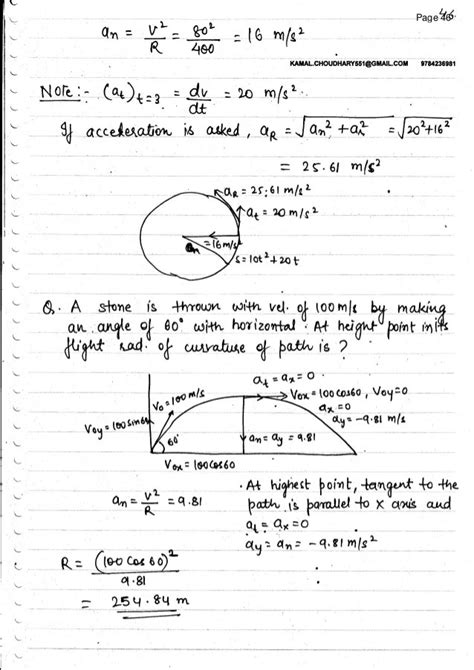 Page 46
an = v²/R = 80²/400 = 16 m/s²
KAMAL.CHOUDHARY551@GMAIL.COM 9784236981
Note:- (at)t=3 = dv/dt = 20 m/s².
If acceleration is asked, aR = √an²+at² = √20²+16²
= 25.61 m/s²
aR = 25.61 m/s²
at = 20 m/s²
an =16 m/s²
s=10t²+20t
Q. A stone is thrown with vel. of 100 m/s by making
an angle of 60° with horizontal. At height point in its
flight rad. of curvature of path is ?
at = ax = 0
Vo = 100 m/s
Vox = 100 cos60, Voy=0
ax=0
ay = -9.81 m/s²
Voy = 100 sin60
60°
an = ay = 9.81
Vox = 100 cos60
an = v²/R = 9.81
· At highest point, tangent to the
path is parallel to x axis and
at = ax = 0
ay = an = -9.81 m/s²
R = (100 cos 60)²/9.81
= 254.84 m